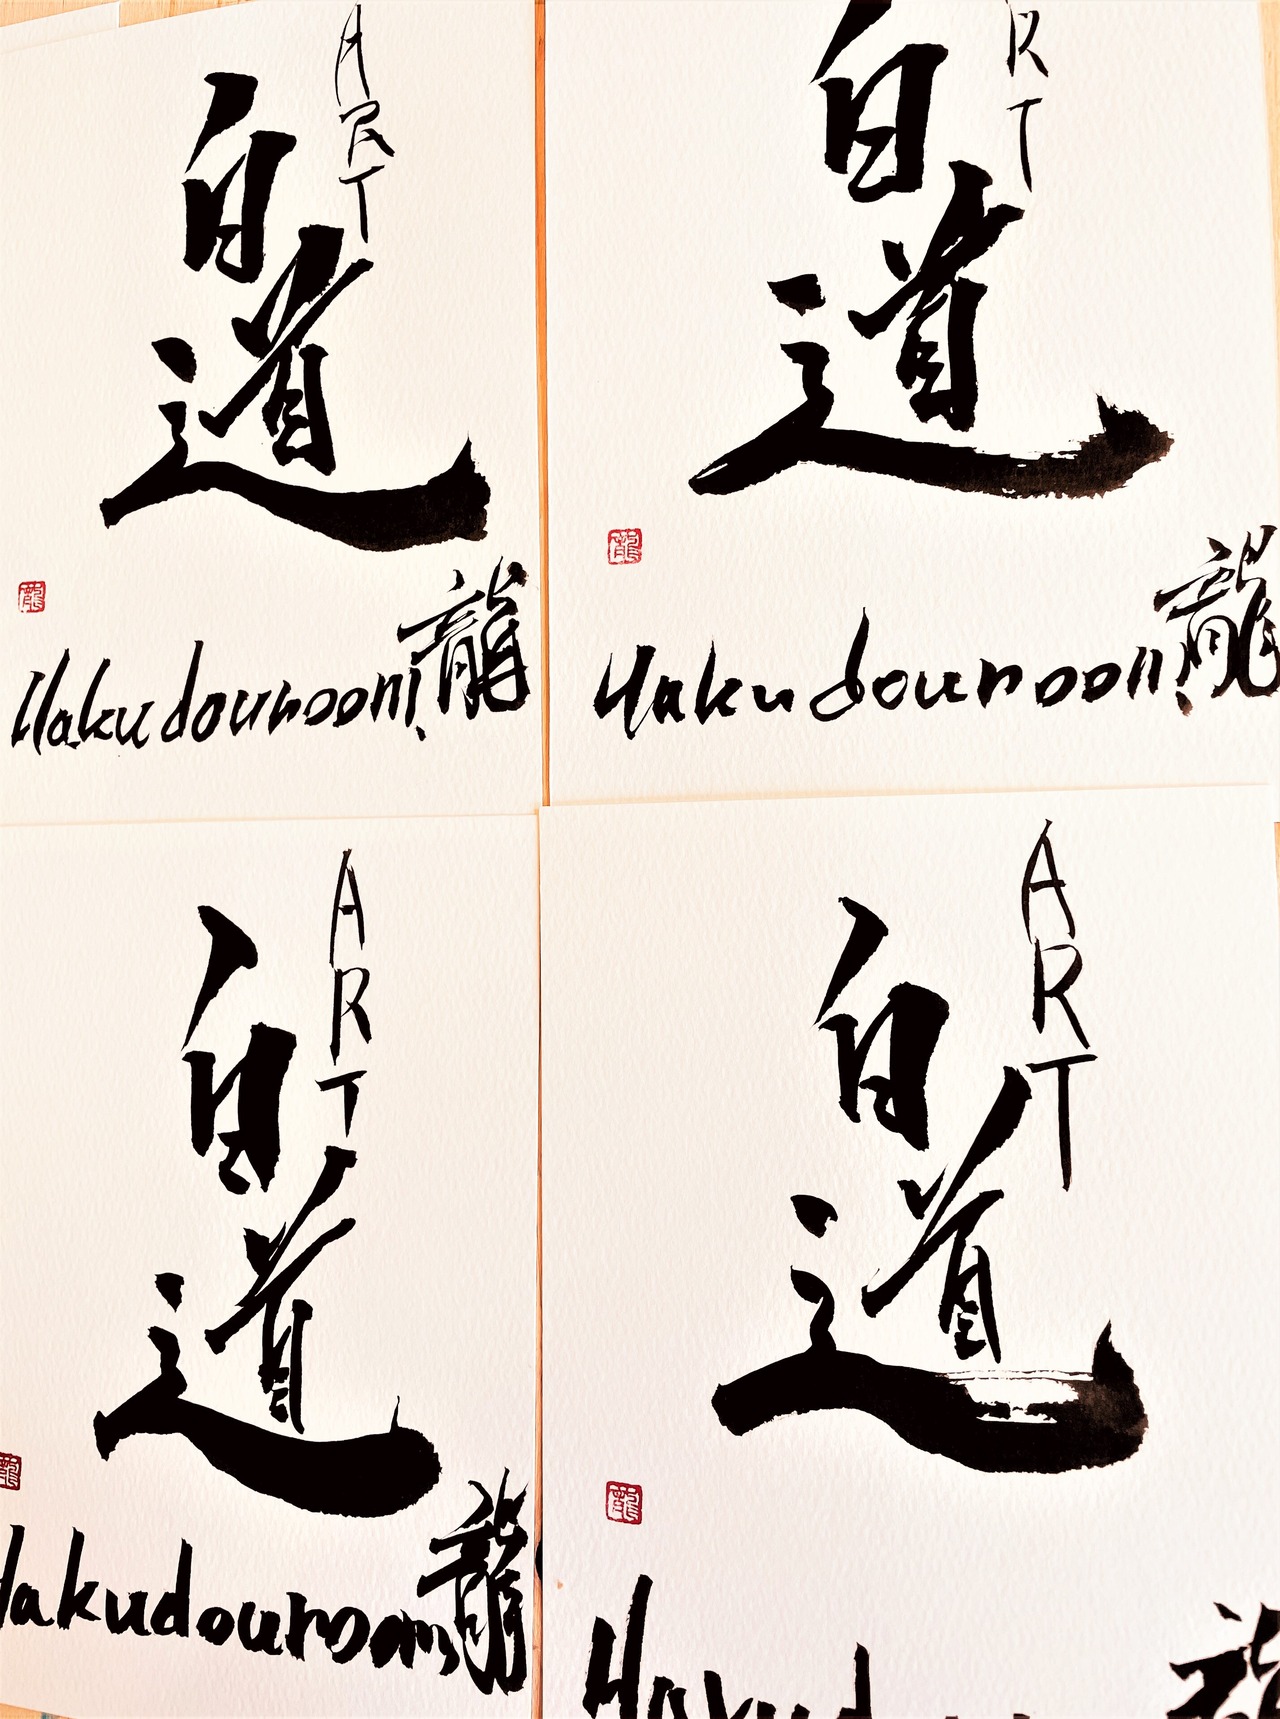 ART
白道
龍
龍
Hakudouroom!
RT
白道
龍
龍
Hakudouroom!
ART
白道
龍
龍
Hakudouroom
ART
白道
龍
龍
Hakud